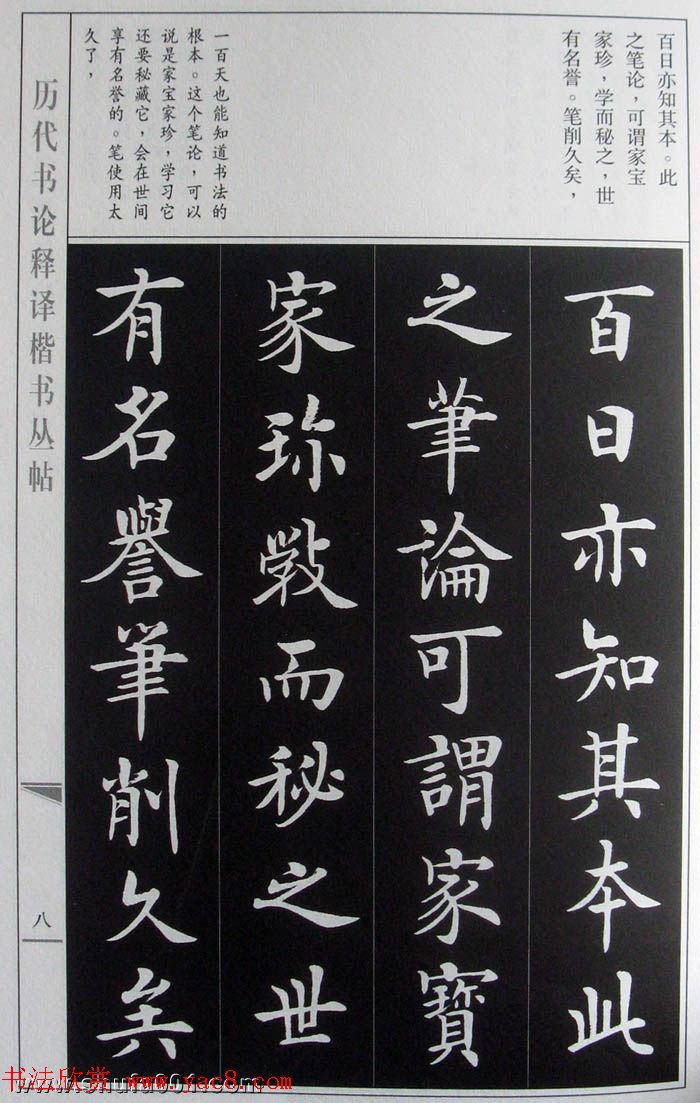 百日亦知其本。此
之笔论，可谓家宝
家珍，学而秘之，世
有名誉。笔削久矣，
一百天也能知道书法的
根本。这个笔论，可以
说是家宝家珍，学习它
还要秘藏它，会在世间
享有名誉的。笔使用太
久了，
百日亦知其本此
之筆論可謂家寶
家珎斆而秘之世
有名譽筆削久矣
历代书论释译楷书丛帖
八
书法欣赏 www.yac8.com